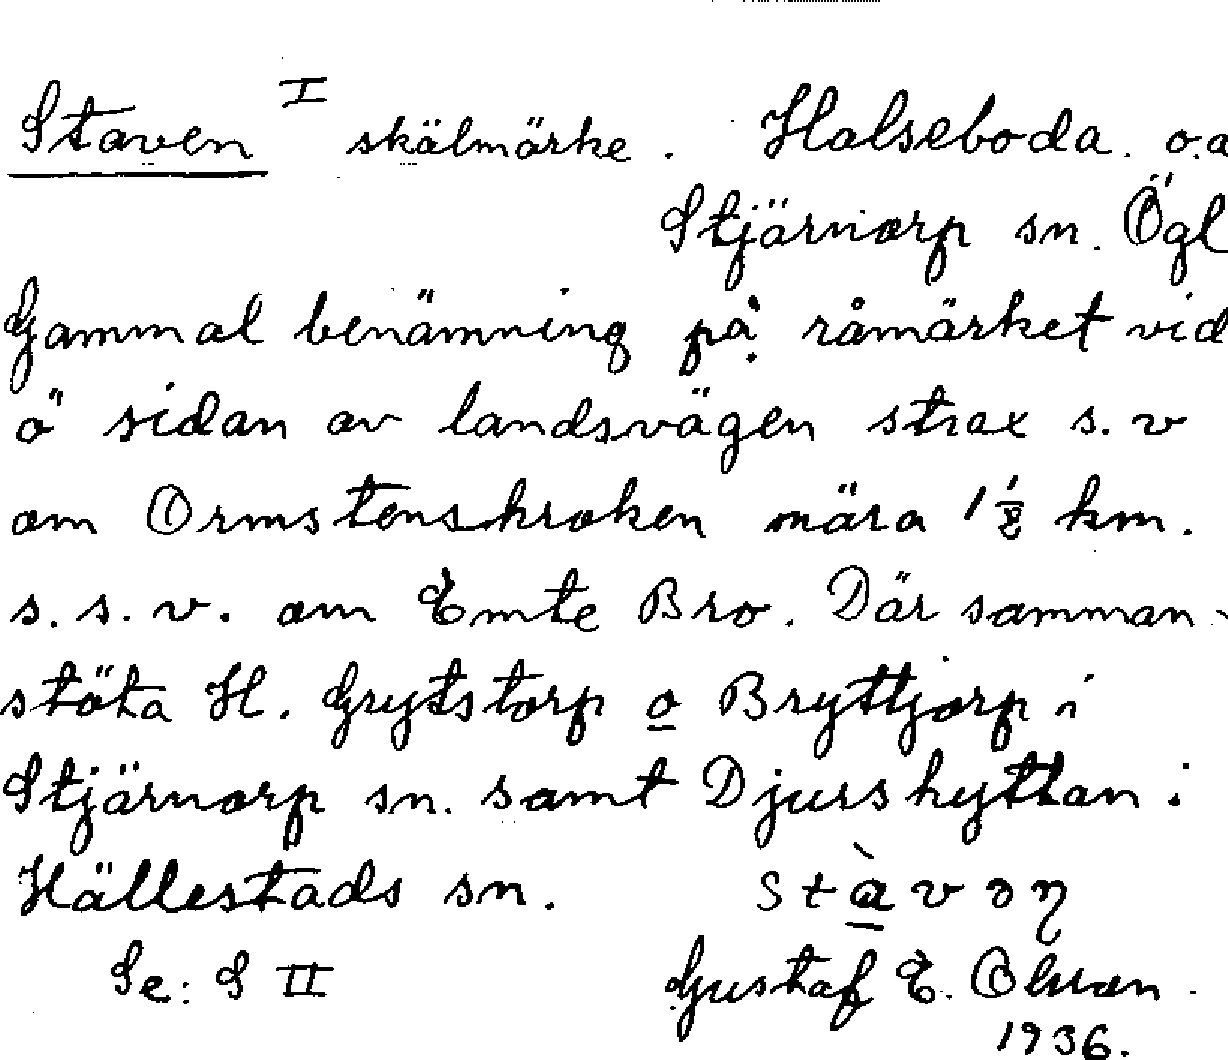 Staven I skälmärke. Halseboda. o.a
Stjärnorp sn. Ögl
Gammal benämning på råmärket vid
ö sidan av landsvägen strax s. v
om Ormstenskroken nära 1 ½ km.
s. s. v. om Emte Bro. Där samman-
stöta H. Grytstorp o Bryttjorp i
Stjärnorp sn. samt Djurshyttan i
Hällestads sn. stàvəη
Se: S II Gustaf E.
1936.